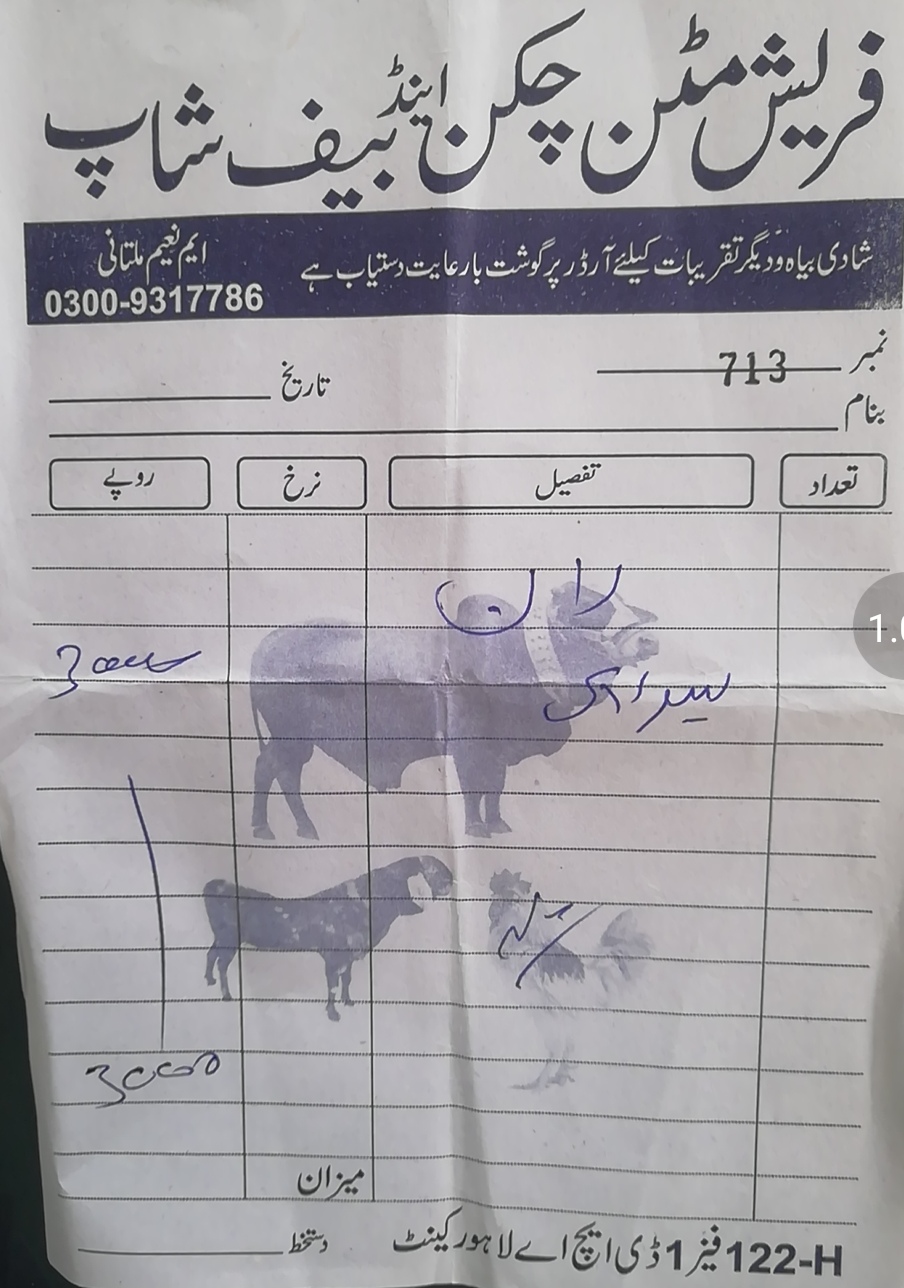 فریش مٹن چکن اینڈ بیف شاپ
شادی بیاہ و دیگر تقریبات کیلئے آرڈر پر گوشت بارعایت دستیاب ہے
ایم نعیم ملتانی
0300-9317786
نمبر 713
تاریخ
بنام
تعداد تفصیل نرخ روپے
ران
3000
3000
میزان
122-H فیز 1 ڈی ایچ اے لاہور کینٹ
دستخط
1.0